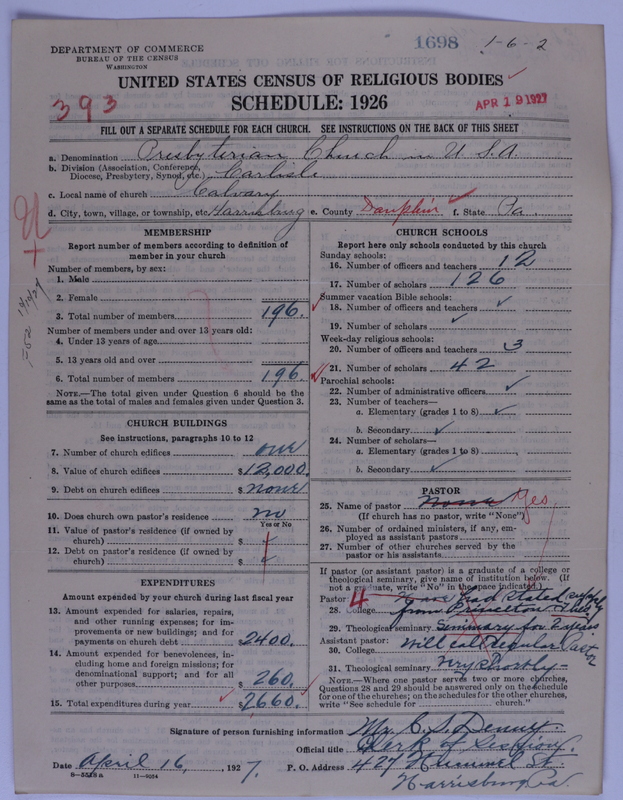 1698 1-6-2
DEPARTMENT OF COMMERCE
BUREAU OF THE CENSUS
WASHINGTON
UNITED STATES CENSUS OF RELIGIOUS BODIES
SCHEDULE: 1926
393
APR 19 1927
FILL OUT A SEPARATE SCHEDULE FOR EACH CHURCH. SEE INSTRUCTIONS ON THE BACK OF THIS SHEET
a. Denomination Presbyterian Church in U.S.A
b. Division (Association, Conference, Diocese, Presbytery, Synod, etc.) Carlisle
c. Local name of church Calvary
d. City, town, village, or township, etc. Harrisburg e. County Dauphin f. State Pa.
MEMBERSHIP
Report number of members according to definition of
member in your church
Number of members, by sex:
1. Male
2. Female
3. Total number of members 196.
Number of members under and over 13 years old:
4. Under 13 years of age
5. 13 years old and over
6. Total number of members 196.
NOTE.—The total given under Question 6 should be the
same as the total of males and females given under Question 3.
CHURCH BUILDINGS
See instructions, paragraphs 10 to 12
7. Number of church edifices one
8. Value of church edifices $12,000.
9. Debt on church edifices $ none
10. Does church own pastor's residence no
Yes or No
11. Value of pastor's residence (if owned by
church) $
12. Debt on pastor's residence (if owned by
church) $
EXPENDITURES
Amount expended by your church during last fiscal year
13. Amount expended for salaries, repairs,
and other running expenses; for im-
provements or new buildings; and for
payments on church debt 2400.
14. Amount expended for benevolences, in-
cluding home and foreign missions; for
denominational support; and for all
other purposes 260.
15. Total expenditures during year $2660.
CHURCH SCHOOLS
Report here only schools conducted by this church
Sunday schools:
16. Number of officers and teachers 12
17. Number of scholars 126
Summer vacation Bible schools:
18. Number of officers and teachers
19. Number of scholars
Week-day religious schools:
20. Number of officers and teachers 3
21. Number of scholars 42
Parochial schools:
22. Number of administrative officers
23. Number of teachers—
a. Elementary (grades 1 to 8)
b. Secondary
24. Number of scholars—
a. Elementary (grades 1 to 8)
b. Secondary
PASTOR
25. Name of pastor None Yes
(If church has no pastor, write "None")
26. Number of ordained ministers, if any, em-
ployed as assistant pastors
27. Number of other churches served by the
pastor or his assistants
If pastor (or assistant pastor) is a graduate of a college or
theological seminary, give name of institution below. (If
not a graduate, write "No" in the space indicated.)
Pastor: 4 Stated supply
28. College from Princeton
29. Theological seminary Seminary for
Assistant pastor: Will call Regular Pastor
30. College
31. Theological seminary very shortly
NOTE.—Where one pastor serves two or more churches,
Questions 28 and 29 should be answered only on the schedule
for one of the churches; on the schedules for the other churches,
write "See schedule for church."
Signature of person furnishing information Mr. C. S. Denny
Official title Clerk of Session.
Date April 16, 1927. P. O. Address 427 Hummel St.
8—5518a 11—9034 Harrisburg Pa.